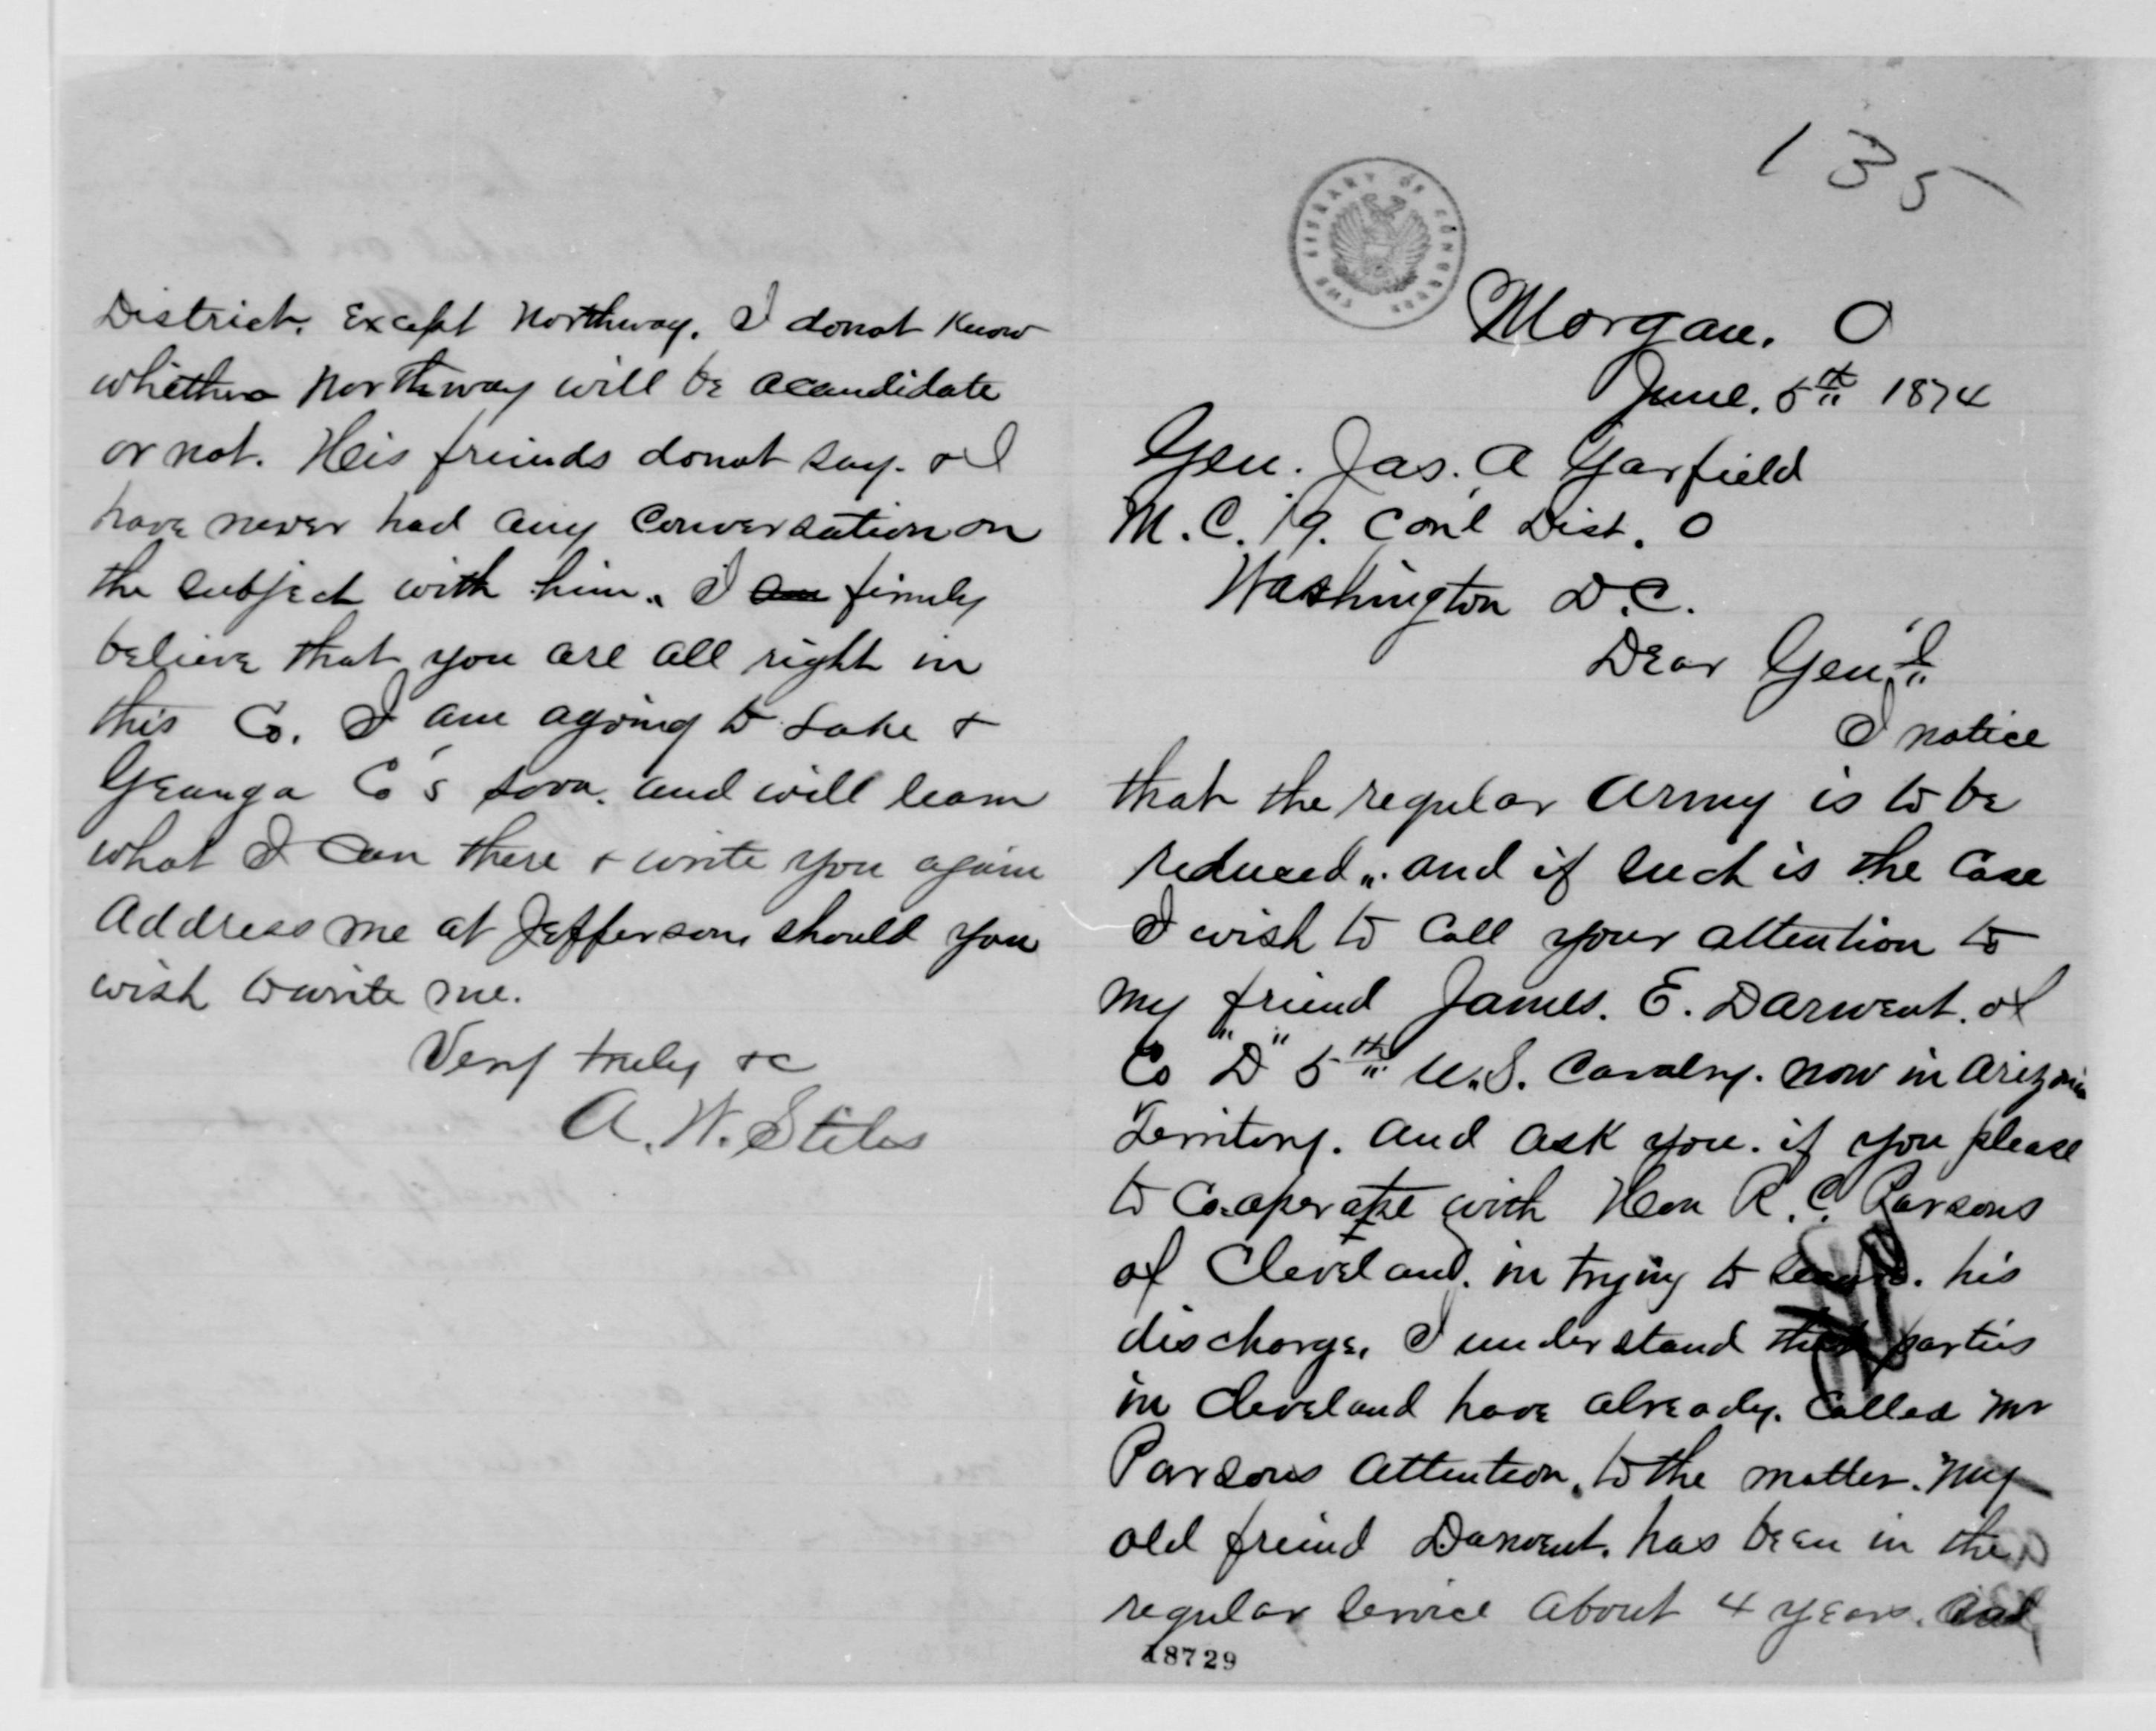 135
THE LIBRARY OF CONGRESS
Morgan. O
June. 5th 1874
Gen. Jas. A Garfield
M. C. 19. Con'l Dist. O
Washington D.C.
Dear Gen'l
I notice
that the regular Army is to be
reduced,, and if such is the Case
I wish to Call your attention to
my friend James. E. Darwent. of
Co "D" 5th U.S. Cavalry. now in Arizona
Territory. And ask you. if you please
to Co.operate with Hon R. C. Parsons
of Cleveland. in trying to secure. his
discharge. I understand that parties
in Cleveland have already. Called Mr
Parsons Attention, to the matter. My
old freind Darwent. has been in the
regular service about 4 years. and
18729
District. Except Northway. I donot Know
whether Northway will be acandidate
or not. His freinds donot say. & I
have never had any Conversation on
the subject with him. I am firmly
believe that you are all right in
this Co. I am agoing to Lake &
Geauga Co's soon. and will learn
what I Can there & write you again
Address me at Jefferson, should you
wish to write me.
Very truly &c
A. W. Stiles